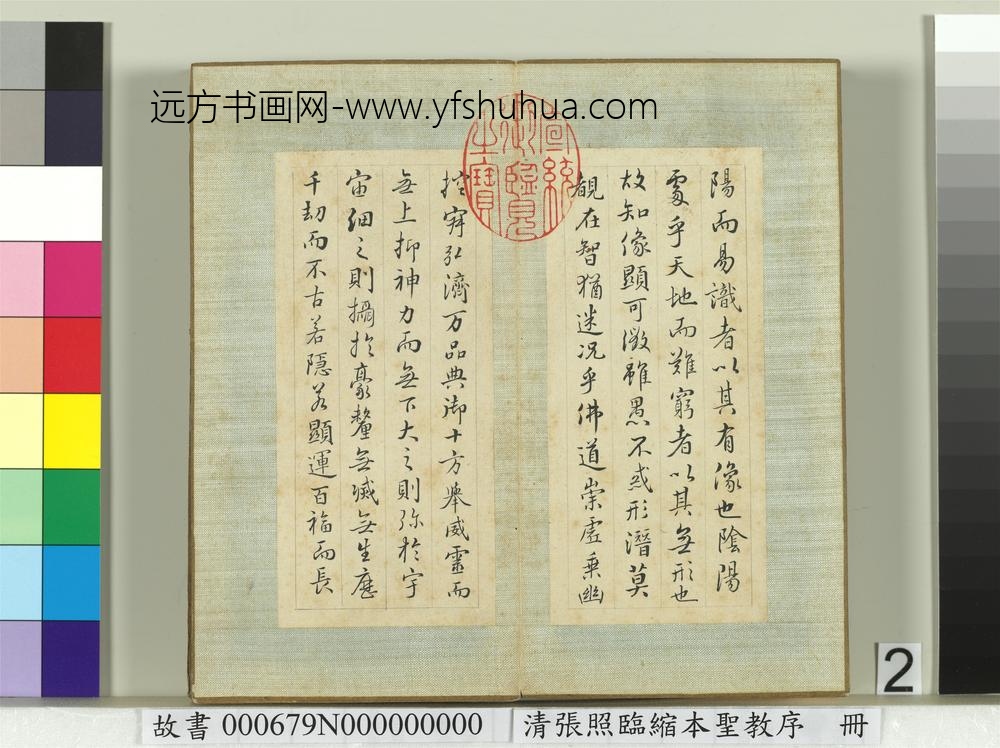 远方书画网-www.yfshuhua.com
宣統御覽之寶
陽而易識者以其有像也陰陽
處乎天地而難窮者以其無形也
故知像顯可徵雖愚不惑形潛莫
覩在智猶迷況乎佛道崇虛乗幽
控寂弘濟万品典御十方舉威靈而
無上抑神力而無下大之則弥於宇
宙細之則攝於豪釐無滅無生歷
千劫而不古若隱若顯運百福而長
2
故書 000679N000000000 清張照臨縮本聖教序 冊